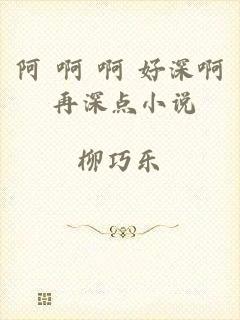 阿 啊 啊 好深啊
再深点小说
柳巧乐